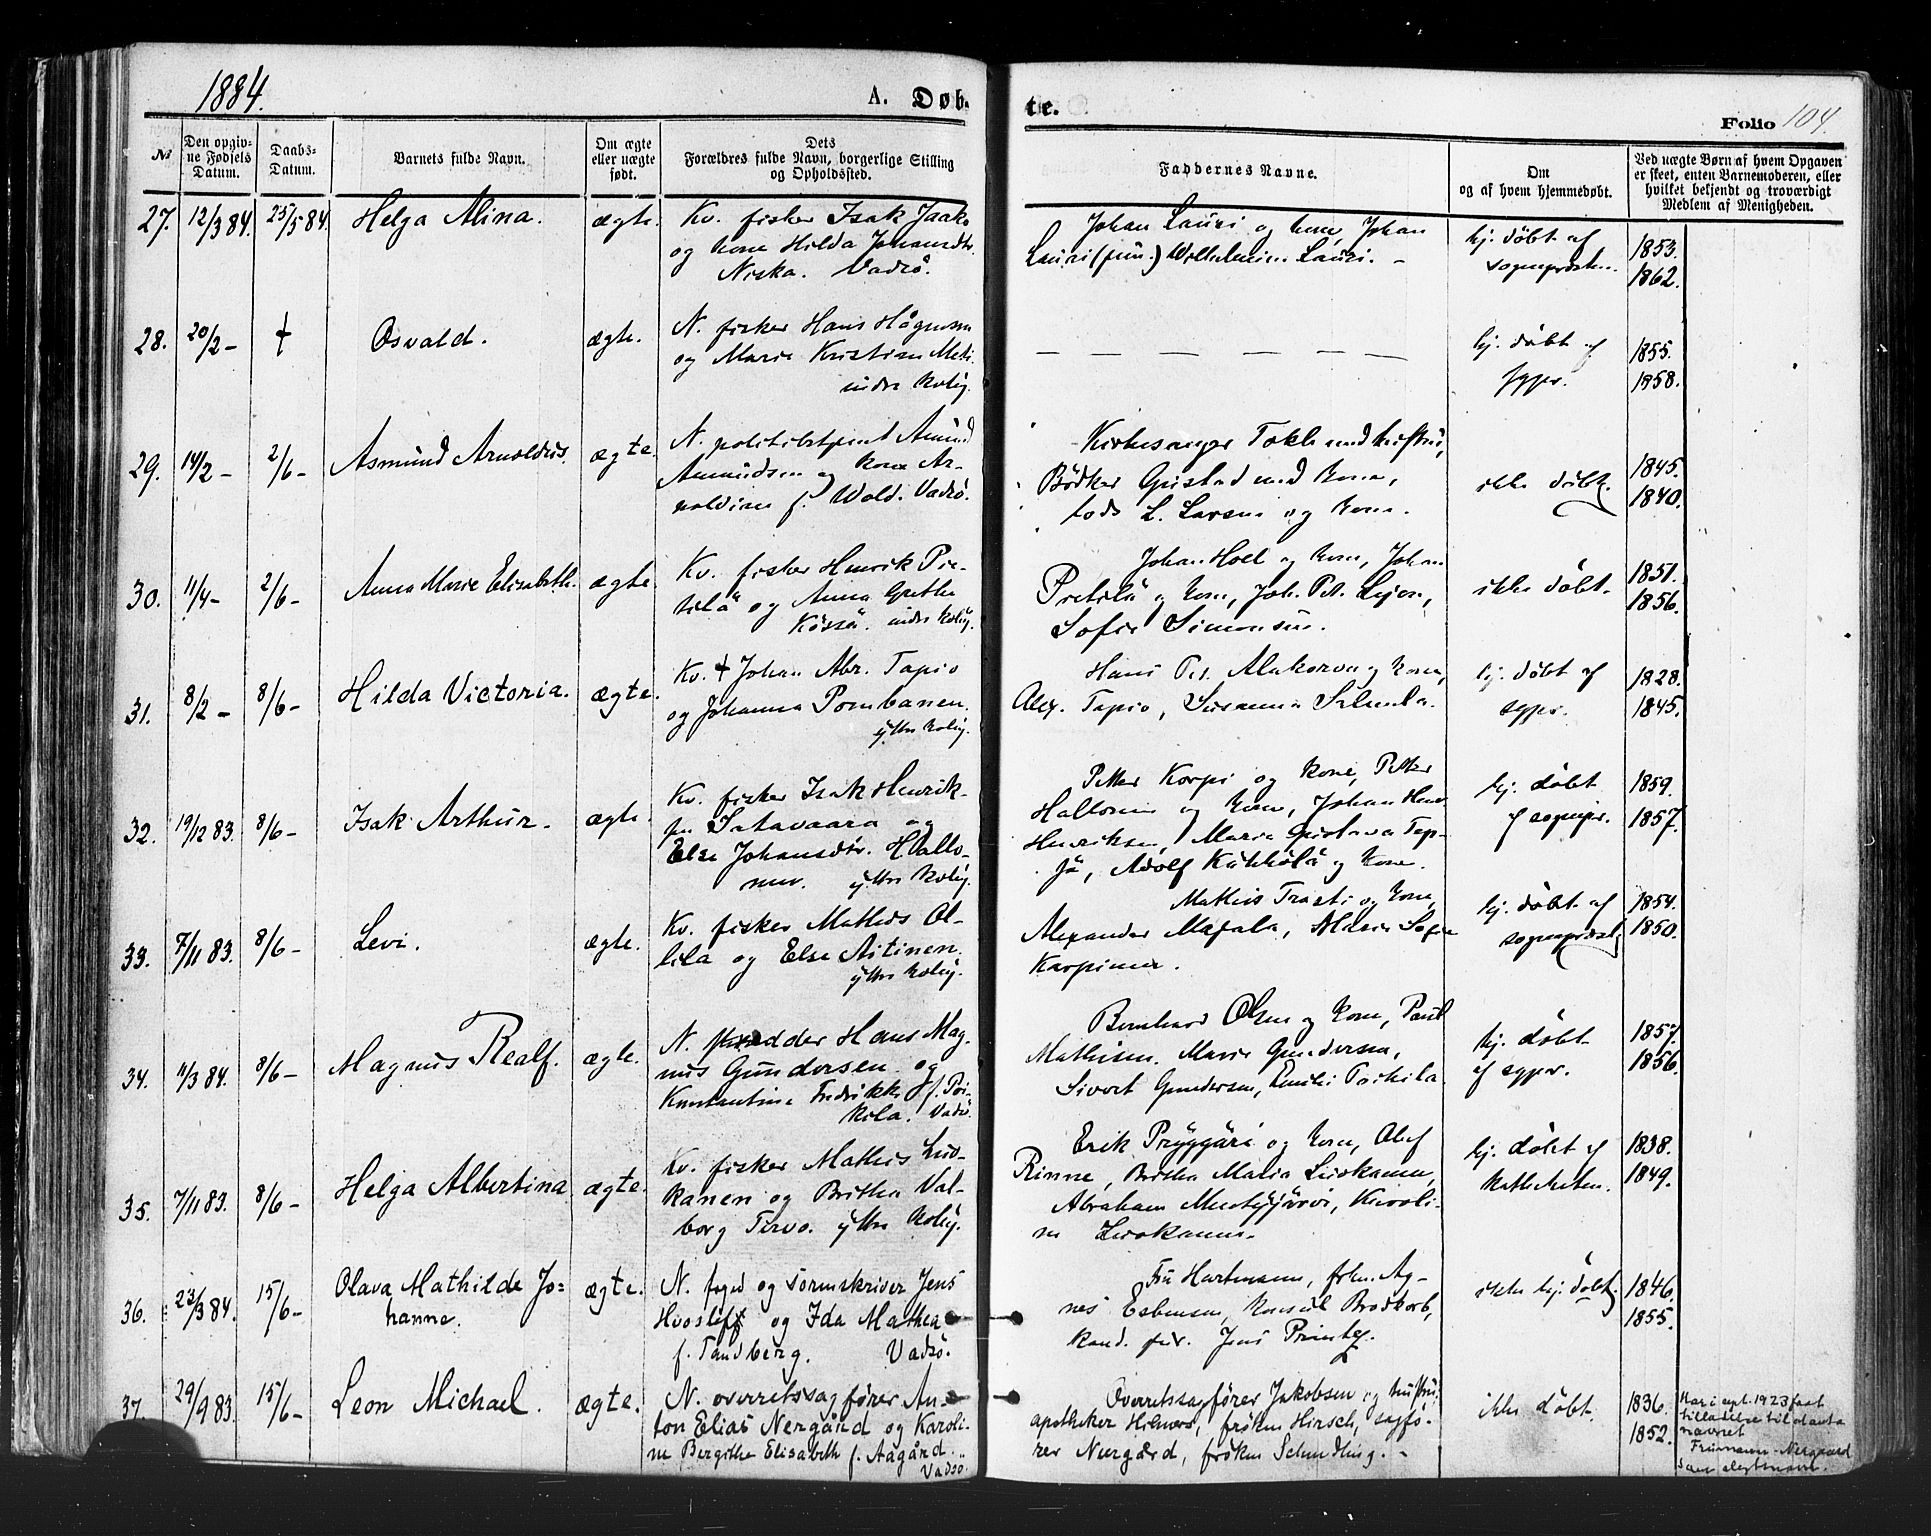 1884.
A. Døb-
te.
Folio 104.
№
Den opgiv-
ne Fødsels
Datum.
Daabs-
Datum.
Barnets fulde Navn.
Om ægte
eller uægte
født.
Dets
Forældres fulde Navn, borgerlige Stilling
og Opholdssted.
Faddernes Navne.
Om
og af hvem hjemmedøbt.
Ved uægte Børn af hvem Opgaven
er skeet, enten Barnemoderen, eller
hvilket bekjendt og troværdigt
Medlem af Menigheden.
27. 12/3 84. 25/5 84. Helga Alina. ægte.
Kv. fisker Isak Jaako
og kone Hilda Johansdtr.
Niska. Vadsö.
Johan Lauri og kone, Johan
Lauri (jun.) Wilhelmine Lauri. –
hj. döbt af
sognepresten.
1853.
1862.
28. 20/2 – † Osvald. ægte.
N. fisker Hans Hågensen
og Marie Kristian
indre kolig.
— — — — — — —
hj. döbt af
sgpr.
1855.
1858.
29. 14/2 – 2/6 – Asmund Arnoldus. ægte.
N. politibetjent Amund
Amundsen og kone Ar-
noldine f. Wold. Vadsö.
Kirkesanger Takle med hustru,
Bödker Gustad med kone,
lods L. Larsen og kone.
ikke döbt.
1845.
1840.
30. 11/4 – 2/6 – Anna Marie Elisabeth. ægte
Kv. fisker Henrik Pie-
tilä og Anna Grethe
indre kolig.
Johan Hoel og kone, Johan
Pietilä og kone, Joh. Pet.
Sofie Simonsen.
ikke döbt.
1851.
1856.
31. 8/2 – 8/6 – Hilda Victoria. ægte.
Kv. † Johan Abr. Tapio
og Johanna Pombanen.
ytre kolig.
Hans Pet. Alakorva og kone,
Alex. Tapio, Susanna
hj. döbt af
sgpr.
1828.
1845.
32. 19/12 83. 8/6 – Isak Arthur. ægte.
Kv. fisker Isak Henrik-
sen Satavaara og
Else Johansdtr. Hallo-
nen. ytre kolig.
Petter Korpi og kone, Petter
Hallonen og kone, Johan
Henriksen, Maria Gustava Tap-
jä, Adolf og kone.
hj. döbt
af sognepr.
1859.
1857.
33. 7/11 83. 8/6 – Levi. ægte.
Kv. fisker Mathias Ol-
lila og Else Aitinen.
ytre kolig.
Mathis og kone,
Alexander Majala, Maria Sofie
Karpinen.
hj. döbt af
sogneprest.
1854.
1850.
34. 11/3 84. 8/6 – Magnus Realf. ægte.
N. Hans Mag-
nus Gundersen og
Konstantine Fredrikke f. Poi-
kila. Vadsö.
Bernhard Olsen og kone, Paul
Mathisen, Marie Gundersen,
Sivert Gundersen, Emilie
hj. döbt
af sgpr.
1857.
1856.
35. 7/11 83. 8/6 – Helga Albertina ægte.
Kv. fisker Mathis Liu-
kanen og Britha Val-
borg Tervo. ytre kolig.
Erik Pryggäri og kone, Olef
Rinne, Britha Maria Liukanen,
Abraham Mustajärvi, Karoli-
ne Liukanen.
hj. döbt af
kateketen.
1838.
1849.
36. 23/3 84. 15/6 – Olava Mathilde Jo-
hanne. ægte.
N. foged og sorenskriver Jens
Hvoslef og Ida Mathea
f. Sandberg. Vadsö.
Fru Hartmann, frkn. Ag-
nes Esbensen, konsul Brodkorb,
kand. Jens
ikke hj. döbt
1846.
1855.
37. 29/9 83. 15/6 – Leon Michael. ægte.
N. overretssagförer An-
ton Elias Nergård og Karoli-
ne Bergithe Elisabeth f. Aagård.
Vadsö.
Overretssagförer Jakobsen og hustru,
apotheker fröken Hirsch, sagfö-
rer Nergård, fröken Schmidling. –
ikke döbt.
1836.
1852.
Har i sept. 1923 faat
tilladelse til at anta
navnet
Frimann-Nergaard
som slegtsnavn.